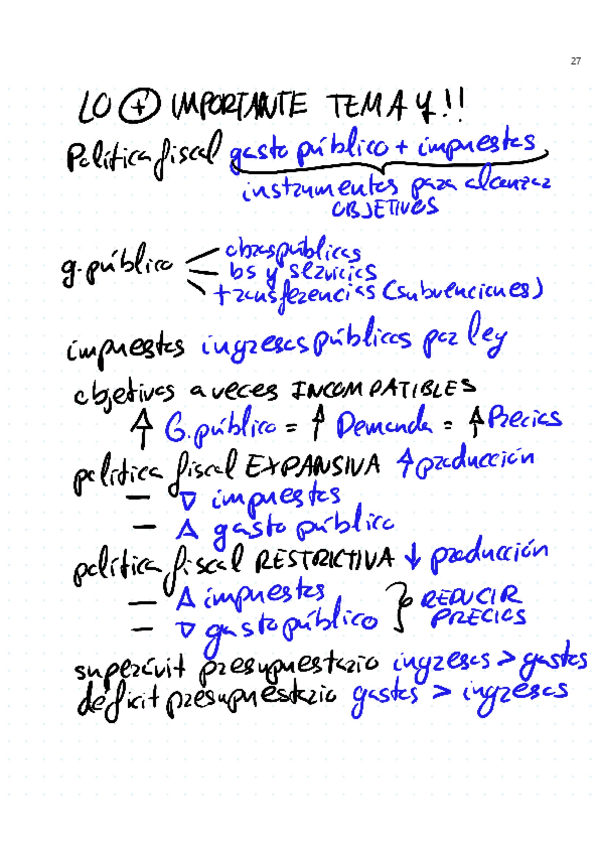 27
LO ⊕ IMPORTANTE TEMA 4!!
Política fiscal gasto público + impuestos
instrumentos para alcanzar
OBJETIVOS
obras públicas
g. público bs y servicios
transferencias (subvenciones)
impuestos ingresos públicos por ley
objetivos a veces INCOMPATIBLES
↑ G. público = ↑ Demanda = ↑ Precios
política fiscal EXPANSIVA ↑ producción
— ∇ impuestos
— Δ gasto público
política fiscal RESTRICTIVA ↓ producción
— Δ impuestos } REDUCIR
— ∇ gasto público PRECIOS
superávit presupuestario ingresos > gastos
déficit presupuestario gastos > ingresos